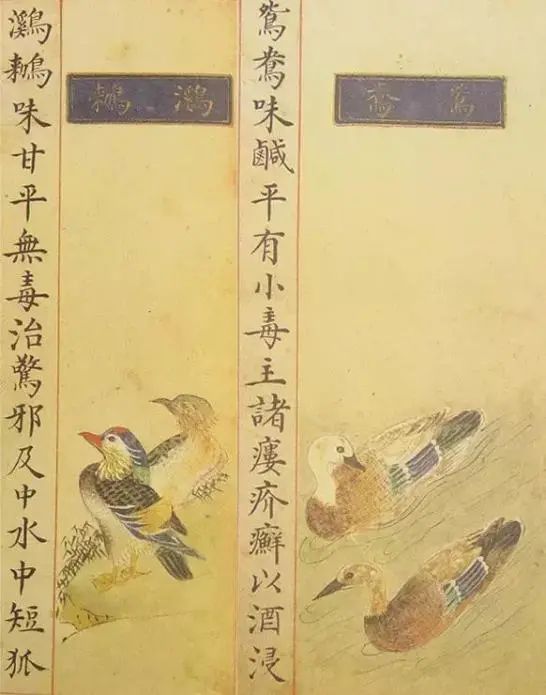 鴛鴦
鴛鴦味鹹平有小毒主諸瘻疥癬以酒浸
鸂鶒
鸂鶒味甘平無毒治驚邪及中水中短狐